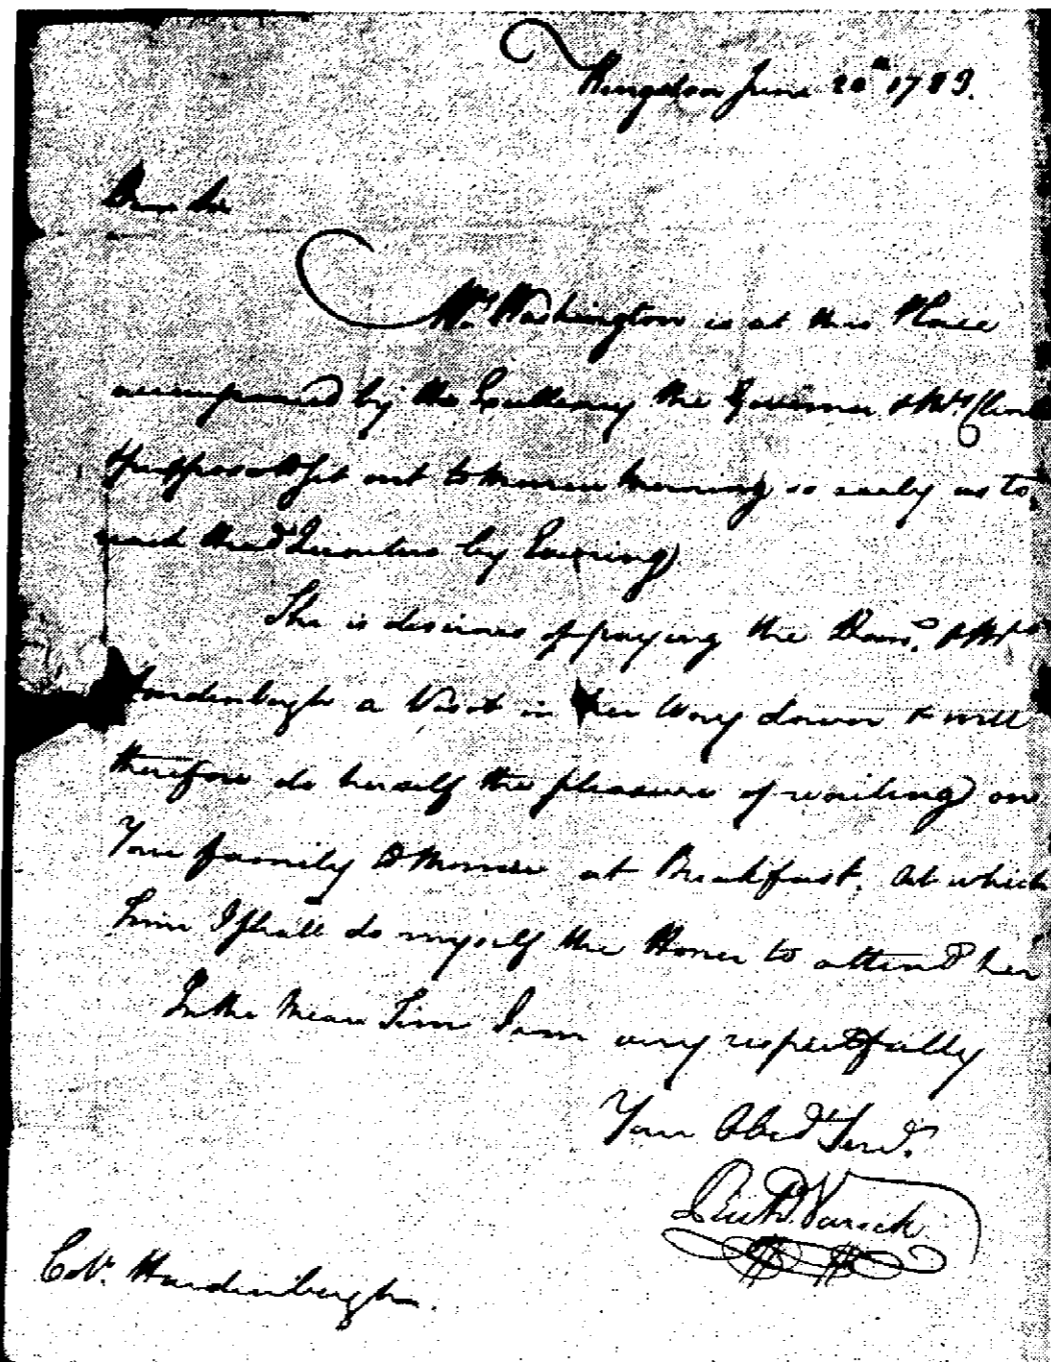 Kingston June 20th 1783.
Dear Sir
Mrs Washington is at this Place
accompanied by the Excellency the Governor & Mrs Clint
& proposes to set out to Morrow Morning so early as to
reach Head Quarters by Evening
She is desirous of paying the &
Hardenbergh a Visit in her Way down & will
therefore do herself the pleasure of waiting on
Your family to Morrow at Breakfast. At which
Time I shall do myself the Honor to attend her
In the Mean Time I am very respectfully
Your Obedt Servt.
Richd. Varick
Colo. Hardenbergh.